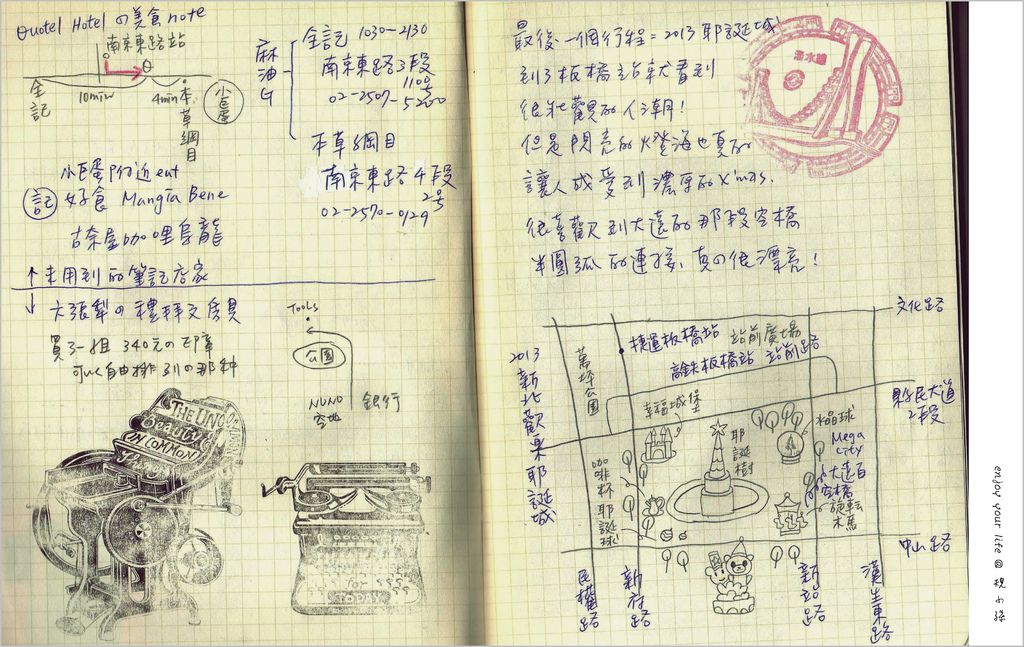 Quotel Hotel の美食note
南京東路站
全記
10min
4min
本草綱目
小巨蛋
麻油G
全記 1030-2130
南京東路3段
110号
02-2507-5200
本草綱目
南京東路4段
2号
02-2570-0129
小巨蛋附近eat
記 好食 Mangia Bene
古奈屋咖哩烏龍
↑未用到的筆記店家
↓ 六張犁の禮拜文房具
買了一組 340元の印章
可以自由排列の那种
TOOLS
公園
NUNO
空地
銀行
THE UNCOMMON
beauty
IN COMMON
for
TODAY
最後一個行程=2013耶誕城!
到了板橋站就看到
很壯觀的人潮!
但是閃亮的燈海也真的
讓人感受到濃厚的X'mas.
很喜歡到大遠的那段空橋
半圓弧的連接、真の很漂亮!
2013新北歡樂耶誕城
萬坪公園
捷運板橋站
站前廣場
高鉄板橋站
站前路
文化路
縣民大道
2段
幸福城堡
耶誕樹
水晶球
Mega
city
大遠百
空橋
旋転木馬
咖啡杯
耶誕球
中山路
民權路
新府路
新站路
漢生東路
enjoy your life @